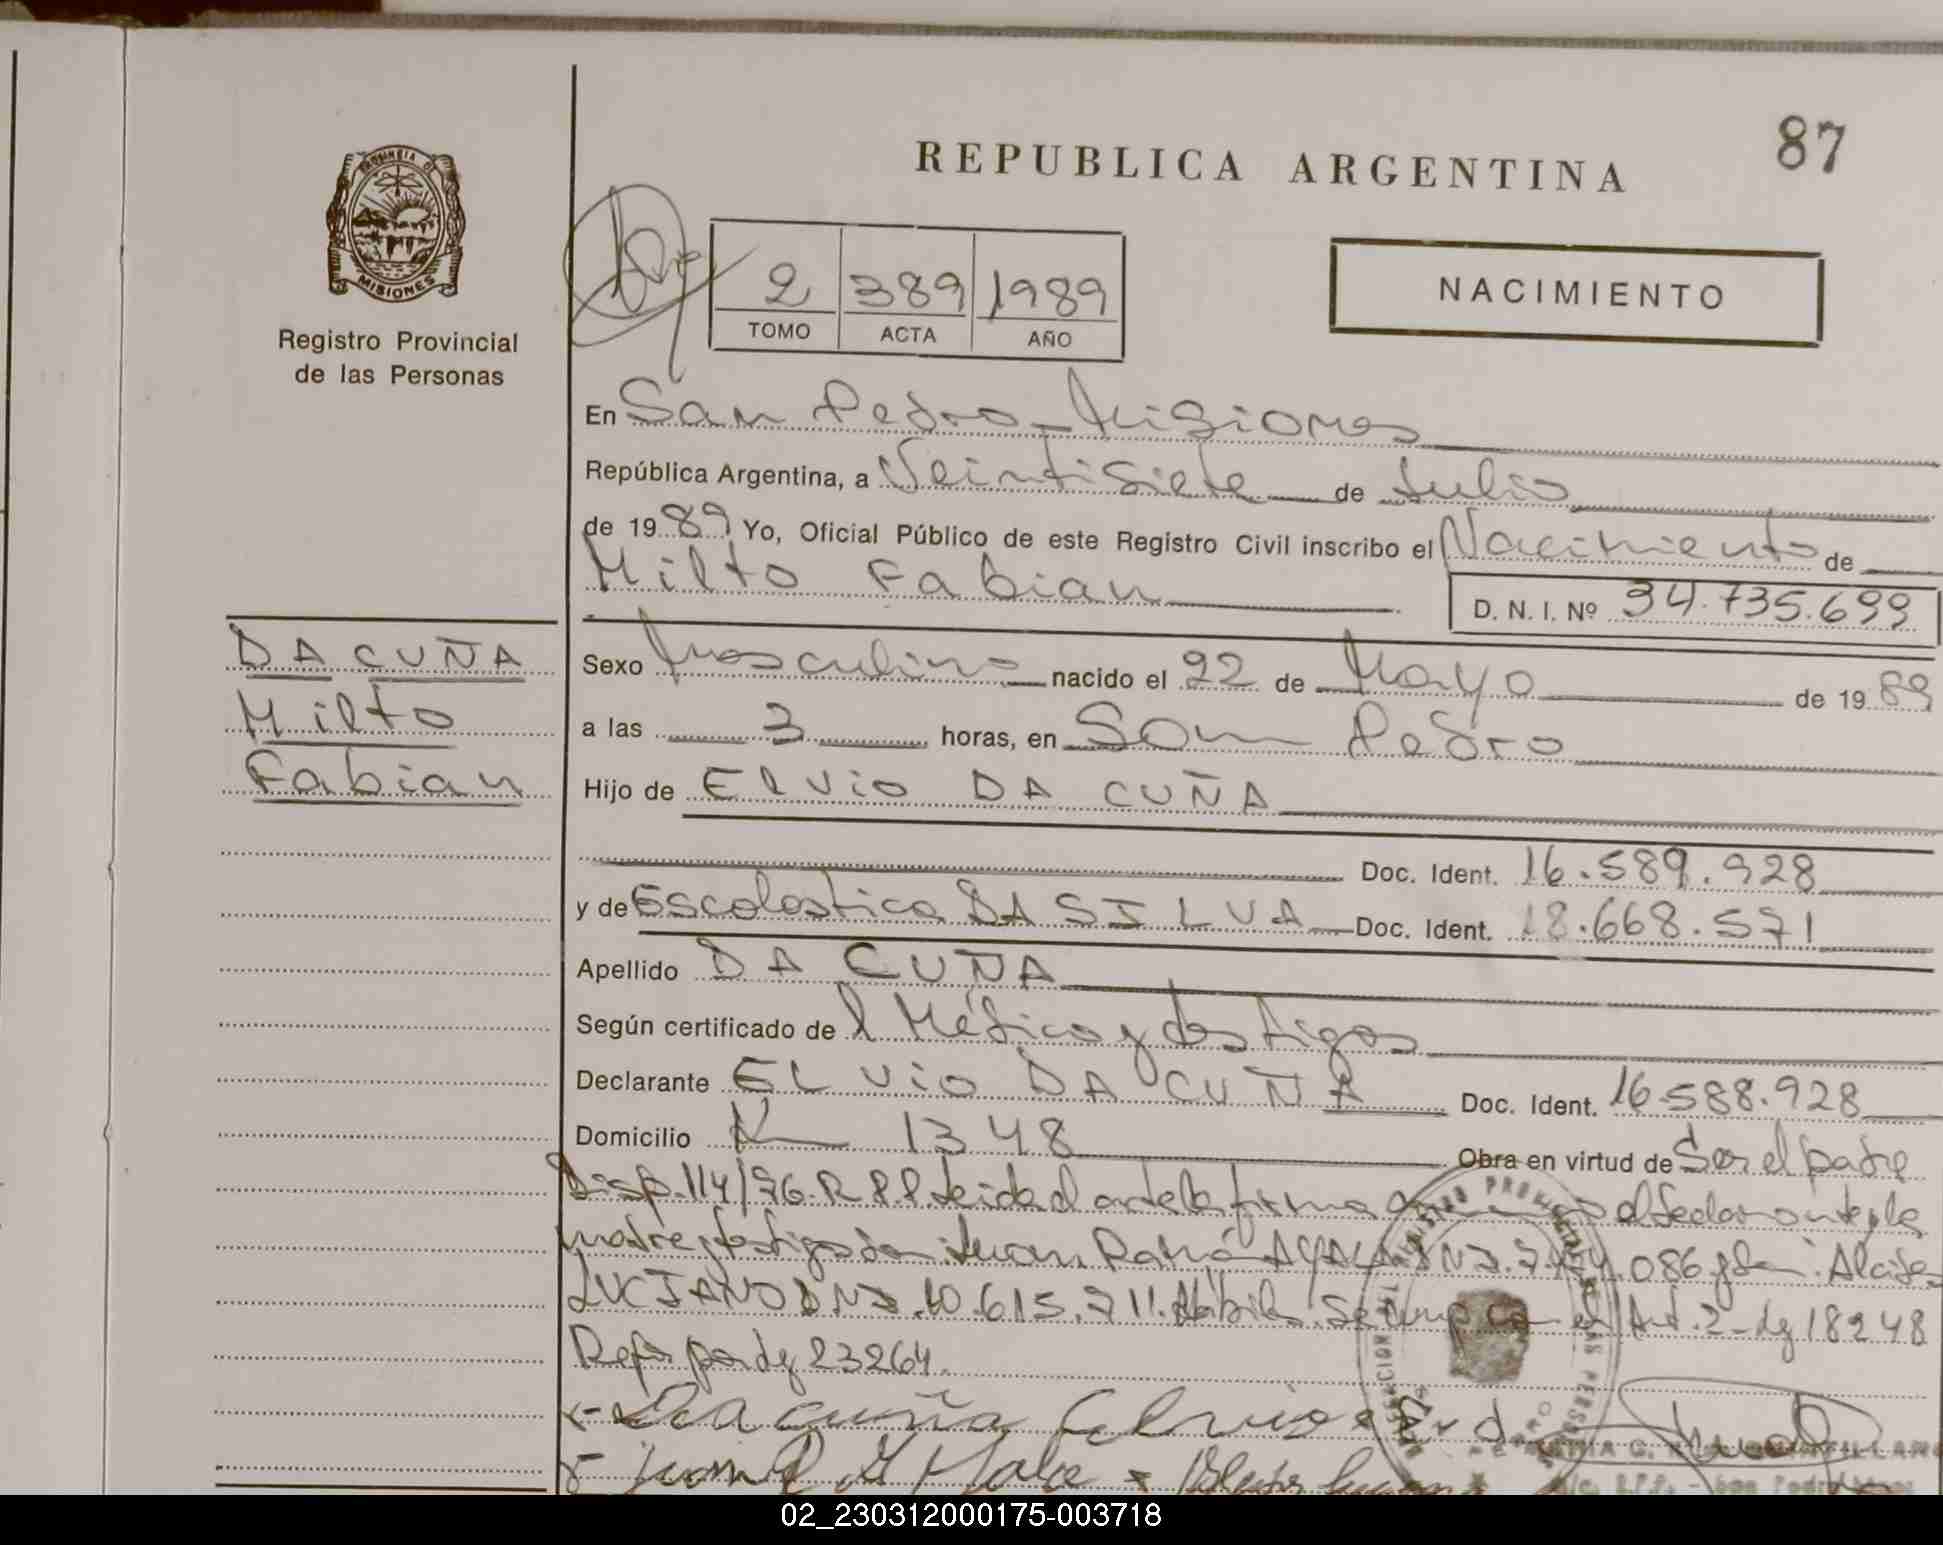 87
REPUBLICA ARGENTINA
PROVINCIA DE
MISIONES
Registro Provincial
de las Personas
2 389 1989
TOMO ACTA AÑO
NACIMIENTO
En San Pedro - Misiones
República Argentina, a Veintisiete de Julio
de 1989 Yo, Oficial Público de este Registro Civil inscribo el Nacimiento de
Milto Fabian
D. N. I. Nº 34.735.699
DA CUÑA
Milto
Fabian
Sexo Masculino nacido el 22 de Mayo de 1989
a las 3 horas, en San Pedro
Hijo de Elvio DA CUÑA
Doc. Ident. 16.589.928
y de Escolastica DA SILVA Doc. Ident. 18.668.571
Apellido DA CUÑA
Según certificado de l Médico y testigos
Declarante ELVIO DA CUÑA Doc. Ident. 16.588.928
Domicilio 1348 Obra en virtud de Ser el padre
Disp. 114/76. R.P.P. firma el declarante y la
madre y testigos Juan AYALA DNI. 7. .086 y Alcides
LUCIANO DNI. 10.615.711. Hábiles. Se cumple con el Art. 2 - Ley 18248
Ref. por Ley 23264.
Da cuña Elvio
02_230312000175-003718